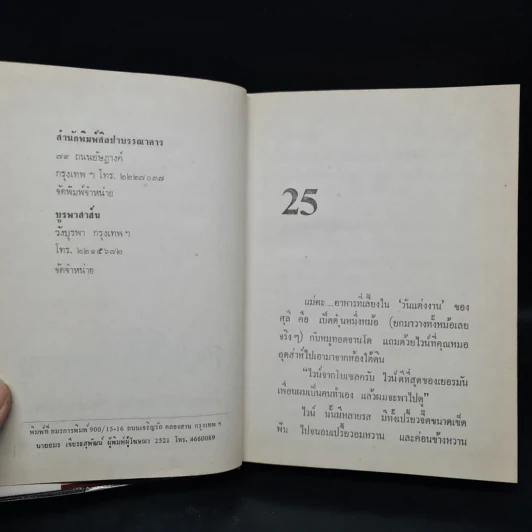 สำนักพิมพ์ศิลปาบรรณาคาร
๗๙ ถนนอัษฎางค์
กรุงเทพ ฯ โทร. ๒๒๒๗๐๓๗
จัดพิมพ์จำหน่าย
บูรพาสาส์น
วังบูรพา กรุงเทพ ฯ
โทร. ๒๒๑๕๖๗๒
จัดจำหน่าย
พิมพ์ที่ อมรการพิมพ์ 900/15-16 ถนนเจริญรัถ คลองสาน กรุงเทพ ฯ
นายอมร เจียระสุพัฒน์ ผู้พิมพ์ผู้โฆษณา 2521 โทร. 4660089
25
แม่คะ....อาหารที่เลี้ยงใน 'วันแต่งงาน' ของ
สุลี คือ เป็ดตุ๋นหนึ่งหม้อ (ยกมาวางทั้งหม้อเลย
จริง ๆ) กับหมูทอดจานโต แถมด้วยไวน์ที่คุณหมอ
อุตส่าห์ไปเอามาจากห้องใต้ดิน
"ไวน์จากโมเซลครับ ไวน์ดีที่สุดของเยอรมัน
เพื่อนผมเป็นคนทำเอง แล้วผมจะพาไปดู"
ไวน์ นั้นมีหลายรส มีทั้งเปรี้ยวจี๊ดขนาดเข็ด
ฟัน ไปจนอมเปรี้ยวอมหวาน และค่อนข้างหวาน